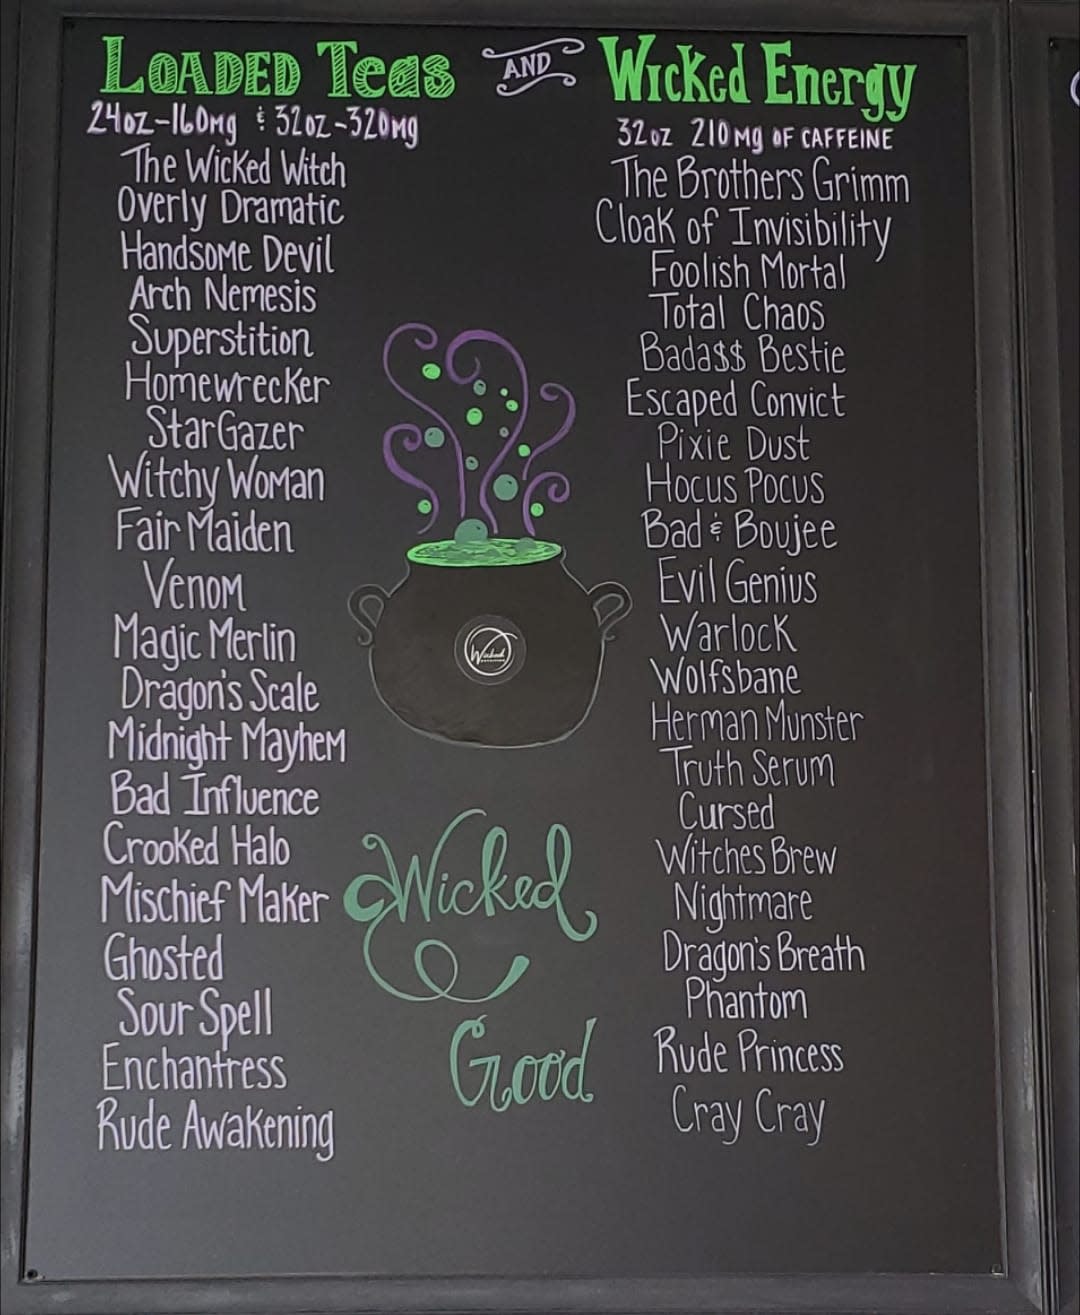 LOADED Teas AND Wicked Energy
24oz-160mg & 32oz-320mg
The Wicked Witch
Overly Dramatic
Handsome Devil
Arch Nemesis
Superstition
Homewrecker
StarGazer
Witchy Woman
Fair Maiden
Venom
Magic Merlin
Dragon's Scale
Midnight Mayhem
Bad Influence
Crooked Halo
Mischief Maker
Ghosted
Sour Spell
Enchantress
Rude Awakening
Wicked
Wicked
Good
32oz 210mg OF CAFFEINE
The Brothers Grimm
Cloak of Invisibility
Foolish Mortal
Total Chaos
Bada$$ Bestie
Escaped Convict
Pixie Dust
Hocus Pocus
Bad & Boujee
Evil Genius
Warlock
Wolfsbane
Herman Munster
Truth Serum
Cursed
Witches Brew
Nightmare
Dragon's Breath
Phantom
Rude Princess
Cray Cray